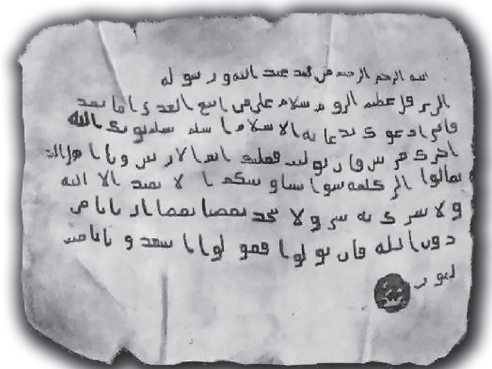 بسم الله الرحمن الرحيم من محمد عبد الله و رسوله
الى هرقل عظيم الروم سلام على من اتبع الهدى اما بعد
فانى ادعوك بدعاية الاسلام اسلم تسلم يوتك الله
اجرك مرتين فان توليت فعليك اثم الاريسين ويا اهل
تعالوا الى كلمة سوا بيننا وبينكم ا لا نعبد الا الله
ولا نشرك به شي ولا يتخذ بعضنا بعضا اربابا من
دون الله فان تولوا فقولوا اشهدوا بانا مس
لمون